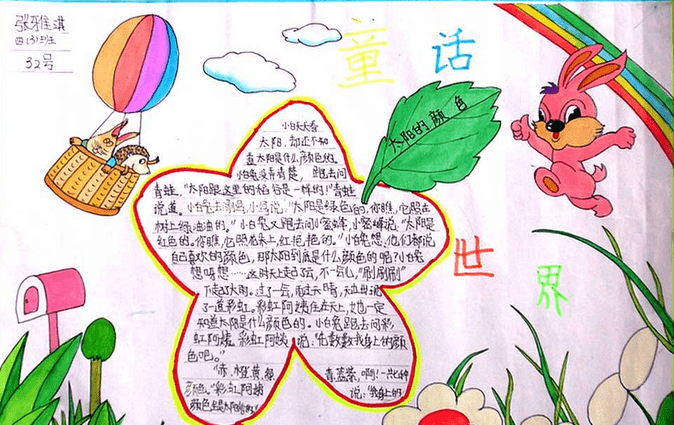 张雅淇
四(3)班
32号
童话
世界
太阳的颜色
小白兔天天看
太阳,却还不知
道太阳是什么颜色的。
小白兔没弄清楚,跑去问
青蛙,“太阳跟这里的稻谷是一样的!”青蛙
说道。小白兔去问小鸟,小鸟说,“太阳是绿色的,你瞧,它照在
树上绿油油的。”小白兔又跑去问小蜜蜂,小蜜蜂说,“太阳是
红色的。你瞧,它照花朵上,红艳艳的。”小白兔想,他们都说
自己喜欢的颜色,那太阳到底是什么颜色的呢?小白兔
想呀想……这时天上起了云,不一会儿,“刷刷刷”
下起了大雨。过了一会,雨过天晴,天边出现
了一道彩虹。彩虹阿姨住在天上,她一定
知道太阳是什么颜色的。小白兔跑去问彩
虹阿姨,彩虹阿姨说,“你数数我身上的颜
色吧。”
“赤、橙、黄、绿、
青、蓝、紫,啊!一共七种
颜色。”彩虹阿姨
说:“我身上的
颜色就是太阳的颜色。”